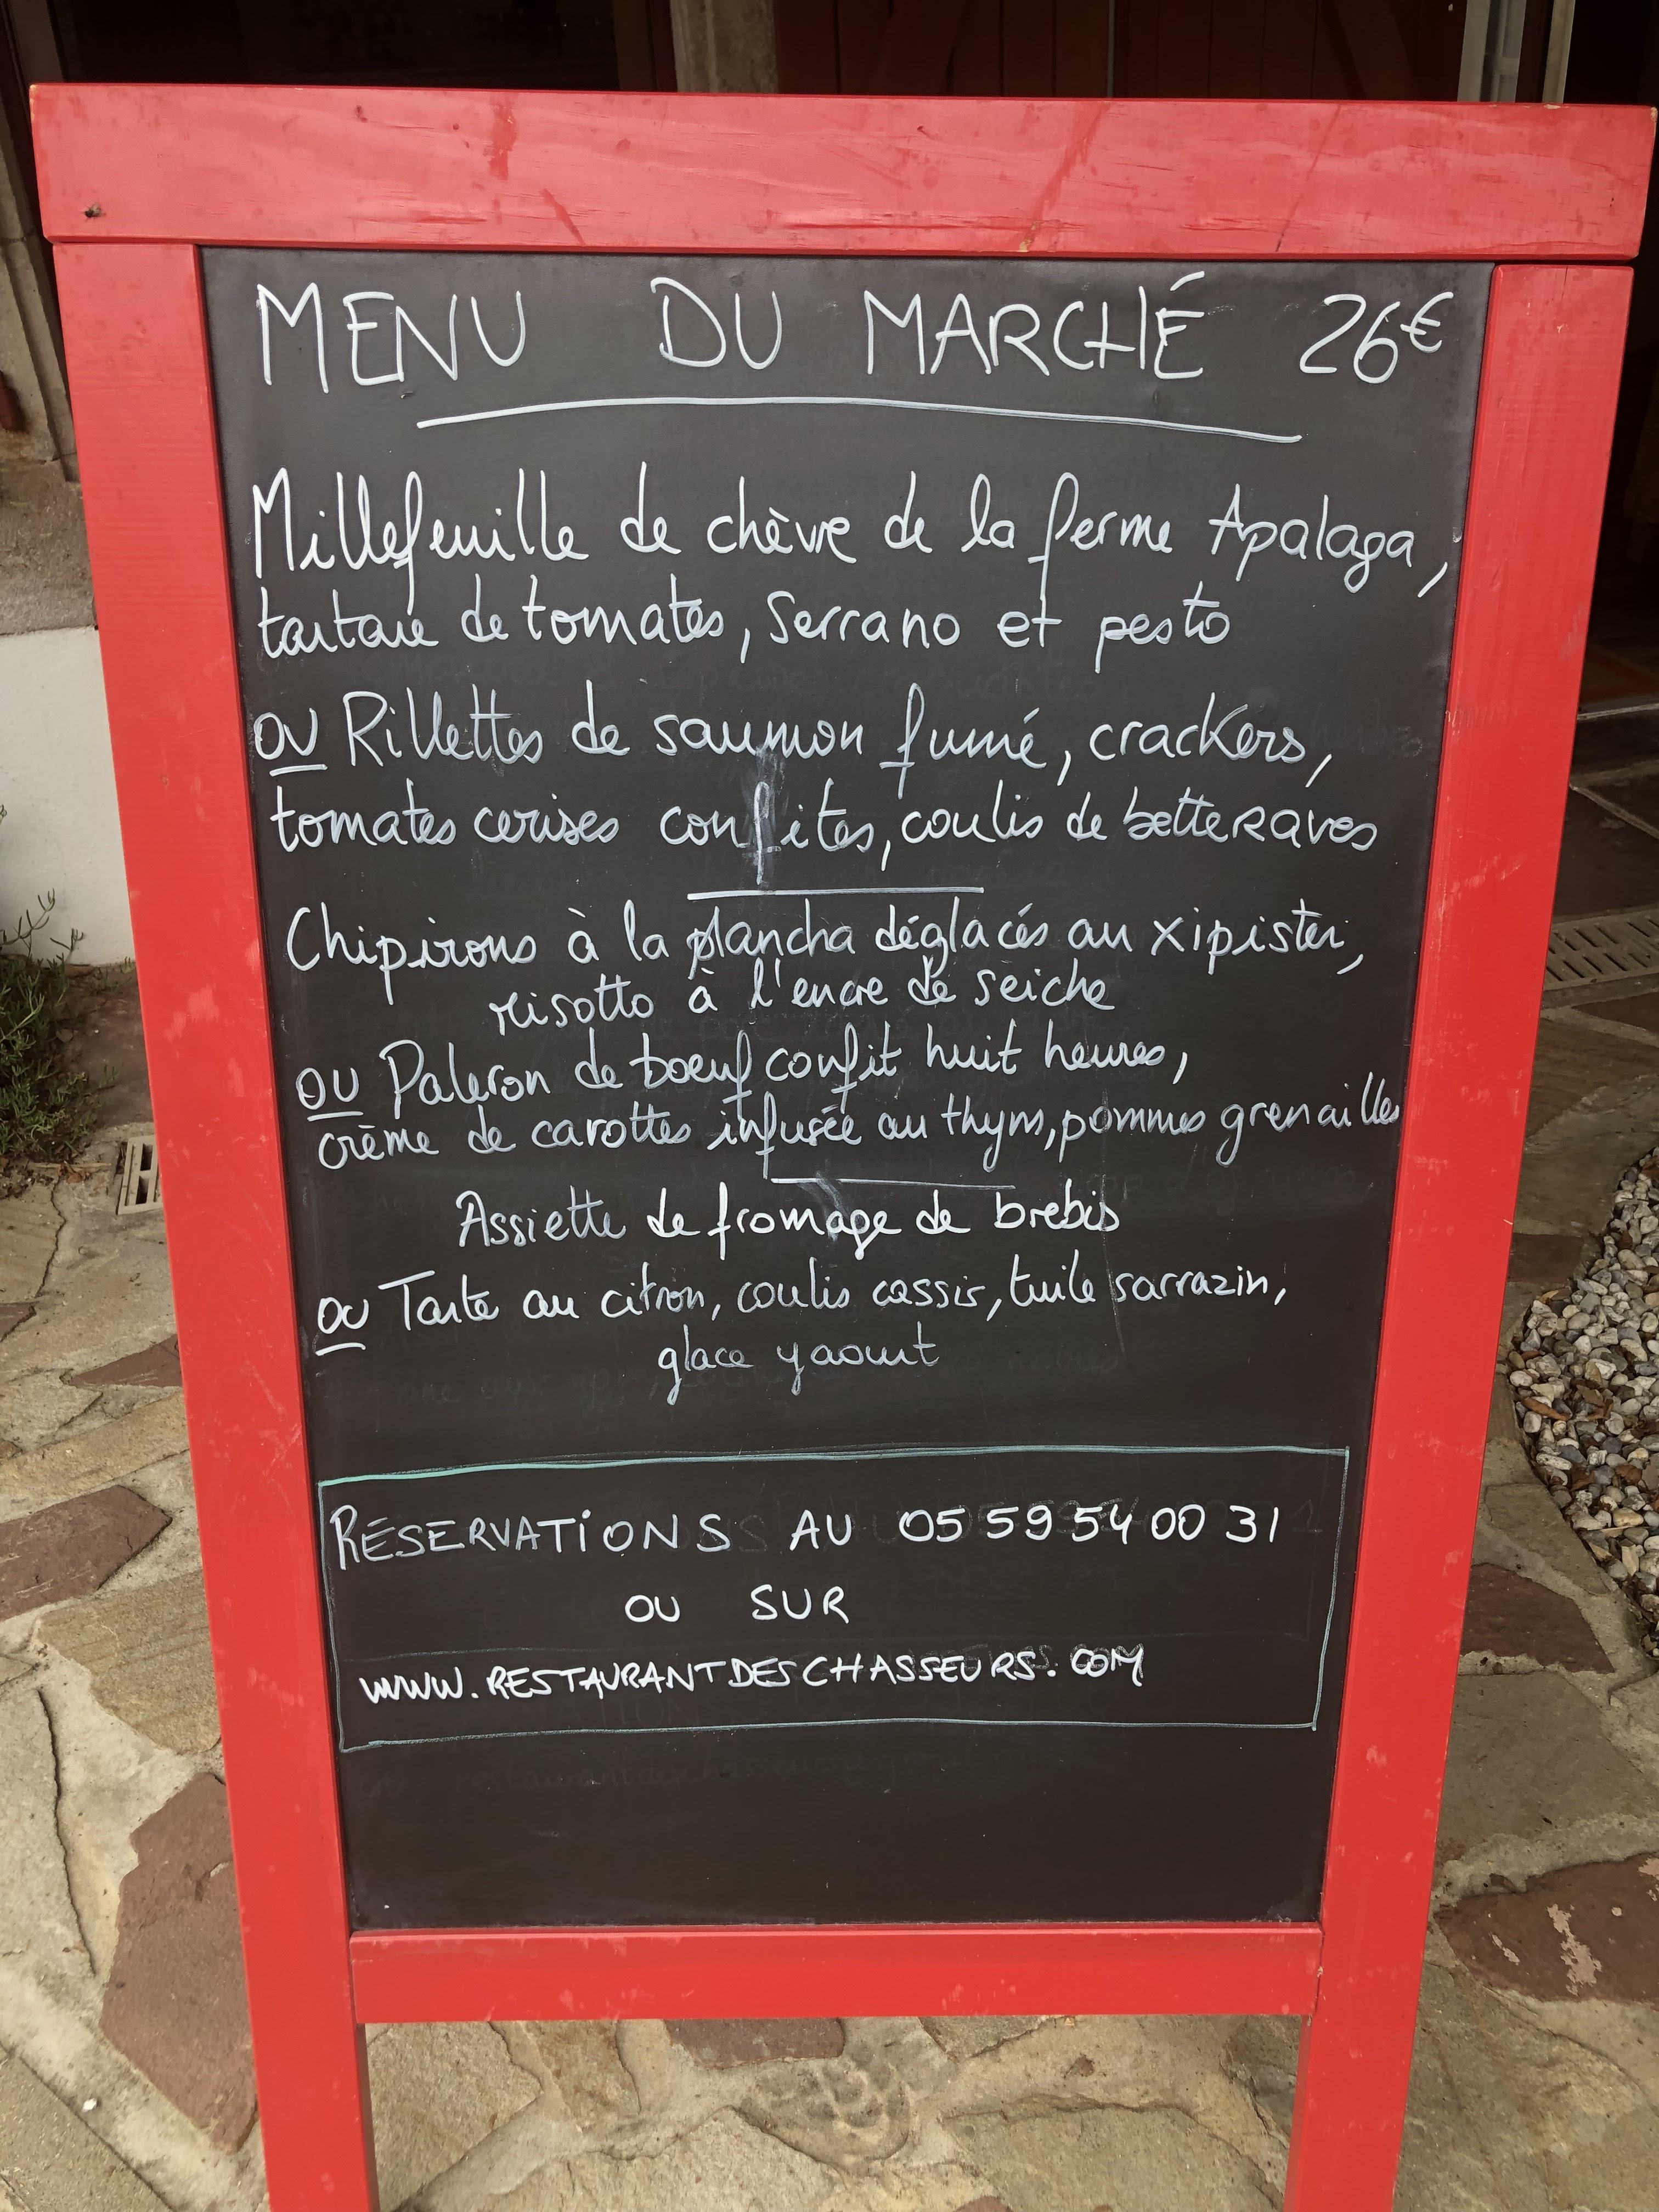 MENU DU MARCHÉ 26€
Millefeuille de chèvre de la ferme Apalaga,
tartare de tomates, Serrano et pesto
ou Rillettes de saumon fumé, crackers,
tomates cerises confites, coulis de betteraves
Chipirons à la plancha déglacés au xipister,
risotto à l'encre de seiche
ou Paleron de boeuf confit huit heures,
crème de carottes infusée au thym, pommes grenailles
Assiette de fromage de brebis
ou Tarte au citron, coulis cassis, tuile sarrazin,
glace yaourt
RÉSERVATIONS AU 05 59 54 00 31
OU SUR
WWW.RESTAURANTDESCHASSEURS.COM